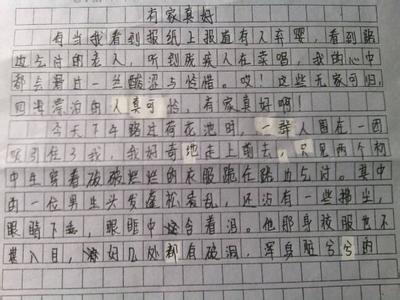 有家真好
有当我看到报纸上报道有人弃婴，看到路
边乞讨的老人，听到残疾人在卖唱，我的心中
都会看过一丝酸涩与怜惜。哎！这些无家可归，
四海漂泊的人真可怜，有家真好啊！
今天下午路过荷花池时，一群人围在一团
吸引住了我，我好奇地走上前去，只见两个初
中生穿着破破烂烂的衣服跪在路边乞讨。其中
的一位男生头发蓬松紊乱，还沾有一些杨尘，
眼睛下垂，眼眶中含着泪。他那身校服也不
堪入目，好几处都有破洞，浑身脏兮兮的